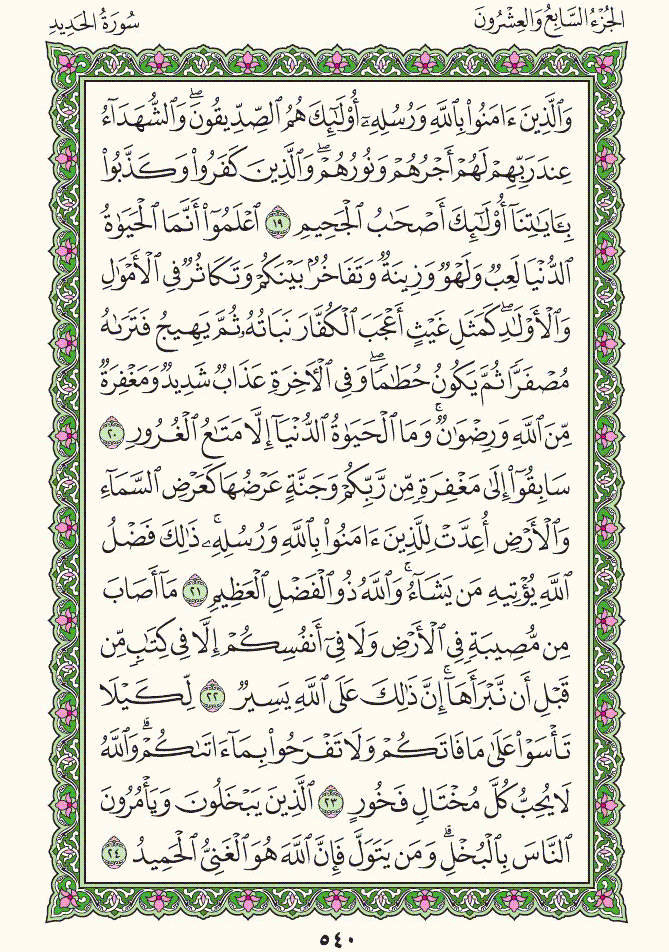 الجُزْءُ السَّابِعُ وَالعِشْرُونَ
سُورَةُ الحَدِيدِ
وَٱلَّذِينَ ءَامَنُوا۟ بِٱللَّهِ وَرُسُلِهِۦٓ أُو۟لَٰٓئِكَ هُمُ ٱلصِّدِّيقُونَ ۖ وَٱلشُّهَدَآءُ
عِندَ رَبِّهِمْ لَهُمْ أَجْرُهُمْ وَنُورُهُمْ ۖ وَٱلَّذِينَ كَفَرُوا۟ وَكَذَّبُوا۟
بِـَٔايَٰتِنَآ أُو۟لَٰٓئِكَ أَصْحَٰبُ ٱلْجَحِيمِ ١٩ ٱعْلَمُوٓا۟ أَنَّمَا ٱلْحَيَوٰةُ
ٱلدُّنْيَا لَعِبٌ وَلَهْوٌ وَزِينَةٌ وَتَفَاخُرٌۢ بَيْنَكُمْ وَتَكَاثُرٌ فِى ٱلْأَمْوَٰلِ
وَٱلْأَوْلَٰدِ ۖ كَمَثَلِ غَيْثٍ أَعْجَبَ ٱلْكُفَّارَ نَبَاتُهُۥ ثُمَّ يَهِيجُ فَتَرَىٰهُ
مُصْفَرًّا ثُمَّ يَكُونُ حُطَٰمًا ۖ وَفِى ٱلْءَاخِرَةِ عَذَابٌ شَدِيدٌ وَمَغْفِرَةٌ
مِّنَ ٱللَّهِ وَرِضْوَٰنٌ ۚ وَمَا ٱلْحَيَوٰةُ ٱلدُّنْيَآ إِلَّا مَتَٰعُ ٱلْغُرُورِ ٢٠
سَابِقُوٓا۟ إِلَىٰ مَغْفِرَةٍ مِّن رَّبِّكُمْ وَجَنَّةٍ عَرْضُهَا كَعَرْضِ ٱلسَّمَآءِ
وَٱلْأَرْضِ أُعِدَّتْ لِلَّذِينَ ءَامَنُوا۟ بِٱللَّهِ وَرُسُلِهِۦ ۚ ذَٰلِكَ فَضْلُ
ٱللَّهِ يُؤْتِيهِ مَن يَشَآءُ ۚ وَٱللَّهُ ذُو ٱلْفَضْلِ ٱلْعَظِيمِ ٢١ مَآ أَصَابَ
مِن مُّصِيبَةٍ فِى ٱلْأَرْضِ وَلَا فِىٓ أَنفُسِكُمْ إِلَّا فِى كِتَٰبٍ مِّن
قَبْلِ أَن نَّبْرَأَهَآ ۚ إِنَّ ذَٰلِكَ عَلَى ٱللَّهِ يَسِيرٌ ٢٢ لِّكَيْلَا
تَأْسَوْا۟ عَلَىٰ مَا فَاتَكُمْ وَلَا تَفْرَحُوا۟ بِمَآ ءَاتَىٰكُمْ ۗ وَٱللَّهُ
لَا يُحِبُّ كُلَّ مُخْتَالٍ فَخُورٍ ٢٣ ٱلَّذِينَ يَبْخَلُونَ وَيَأْمُرُونَ
ٱلنَّاسَ بِٱلْبُخْلِ ۗ وَمَن يَتَوَلَّ فَإِنَّ ٱللَّهَ هُوَ ٱلْغَنِىُّ ٱلْحَمِيدُ ٢٤
٥٤٠